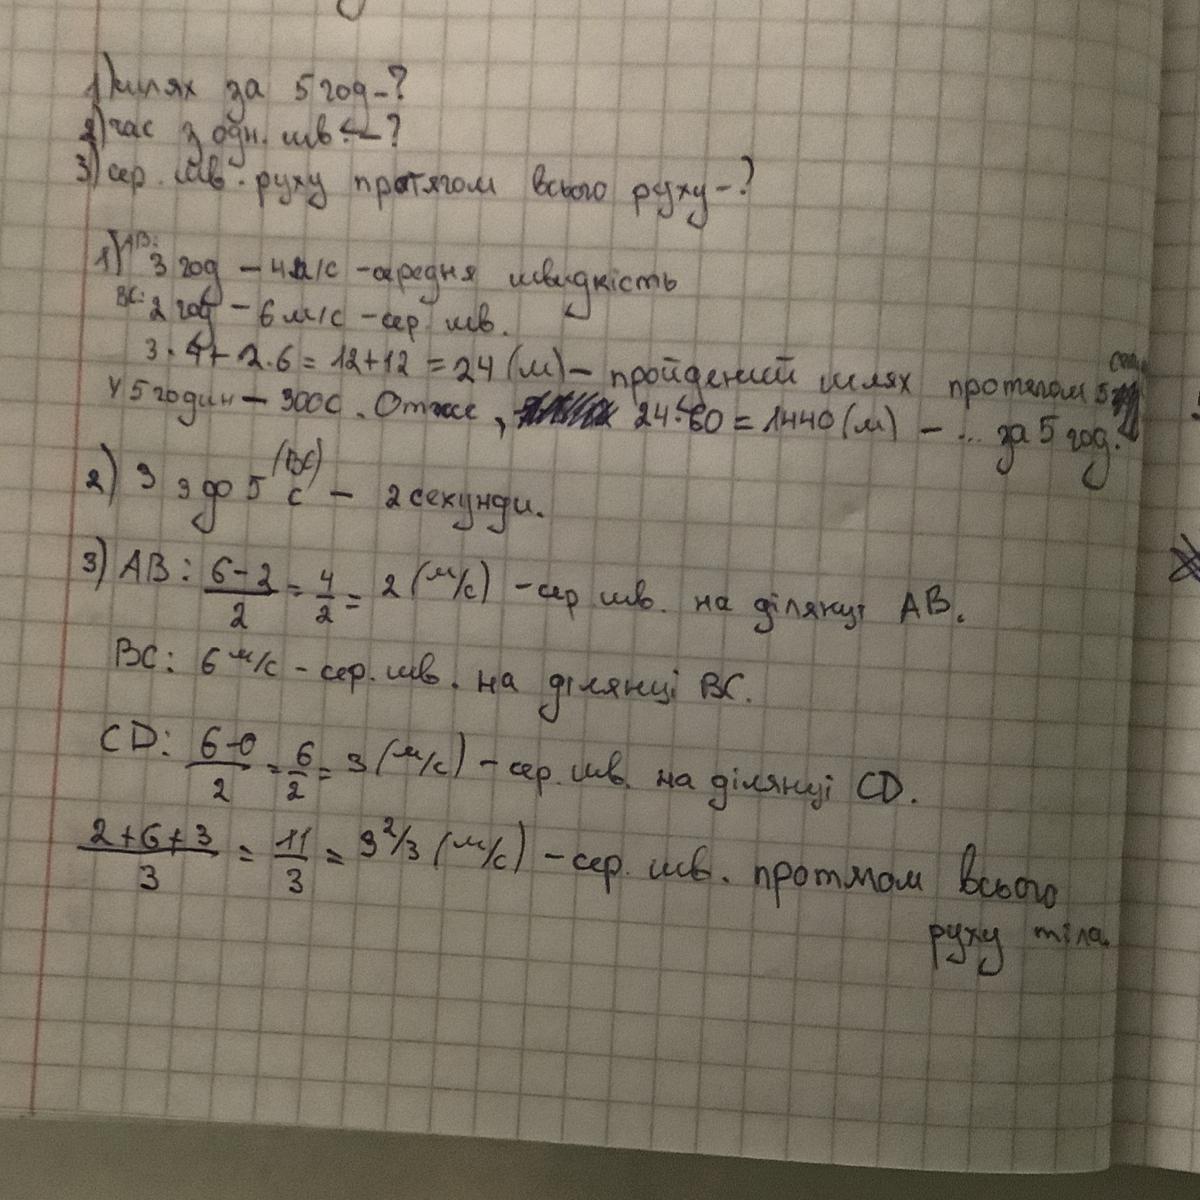 1) шлях за 5 год-?
2) час з одн. шв. - ?
3) сер. шв. руху протягом всього руху-?
1) AB: 3 год - 4м/с - середня швидкість
BC: 2 год - 6 м/с - сер. шв.
3·4+2·6=12+12=24 (м) - пройдений шлях протягом 5 сек
У 5 годин - 300с. Отже, 24·60=1440(м) - ... за 5 год.
2) З 3 до 5 с (BC) - 2 секунди.
3) AB: 6-2/2 = 4/2 = 2 (м/с) - сер. шв. на ділянці AB.
BC: 6 м/с - сер. шв. на ділянці BC.
CD: 6-0/2 = 6/2 = 3 (м/с) - сер. шв. на ділянці CD.
2+6+3/3 = 11/3 = 3 2/3 (м/с) - сер. шв. протягом всього
руху тіла.